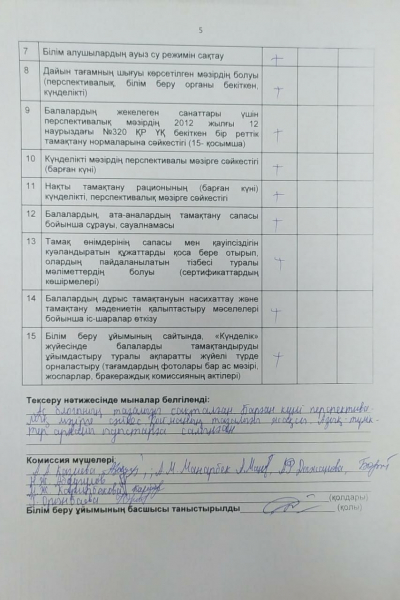 5
7 Білім алушылардың ауыз су режимін сақтау +
8 Дайын тағамның шығуы көрсетілген мәзірдің болуы
(перспективалық, білім беру органы бекіткен,
күнделікті) +
9 Балалардың жекелеген санаттары үшін
перспективалық мәзірдің 2012 жылғы 12
наурыздағы №320 ҚР ҮҚ бекіткен бір реттік
тамақтану нормаларына сәйкестігі (15- қосымша) +
10 Күнделікті мәзірдің перспективалы мәзірге сәйкестігі
(барған күні) +
11 Нақты тамақтану рационының (барған күні)
күнделікті, перспективалық мәзірге сәйкестігі +
12 Балалардың, ата-аналардың тамақтану сапасы
бойынша сұрауы, сауалнамасы +
13 Тамақ өнімдерінің сапасы мен қауіпсіздігін
куәландыратын құжаттарды қоса бере отырып,
олардың пайдаланылатын тізбесі туралы
мәліметтердің болуы (сертификаттардың
көшірмелері) +
14 Балалардың дұрыс тамақтануын насихаттау және
тамақтану мәдениетін қалыптастыру мәселелері
бойынша іс-шаралар өткізу +
15 Білім беру ұйымының сайтында, «Күнделік»
жүйесінде балаларды тамақтандыруды
ұйымдастыру туралы ақпаратты жүйелі түрде
орналастыру (тағамдардың фотолары бар ас мәзірі,
жоспарлар, бракераждық комиссияның актілері) +
Тексеру нәтижесінде мыналар белгіленді:
Ас блогының тазалығы сақталған Барған күні перспектива
мәзірге сәйкес тазалығы жақсы
арнайы
Комиссия мүшелері
А.М. Манарбек
(қолдары)
Білім беру ұйымының басшысы таныстырылды (қолы)